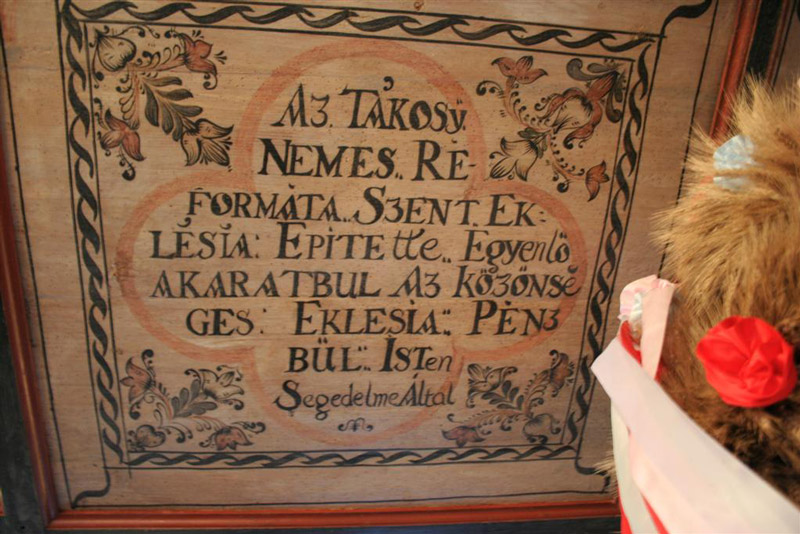 Az. TÁKOSY.
NEMES.. RE-
FORMÁTA.. SZENT. EK-
LÉSIA: ÉPITEtte.. Egyenlö
AKARATBUL AZ KÖZÖNSÉ
GES: EKLÉSIA:. PÉNZ
BÜL.. ISTen
SegedelmeÁltal